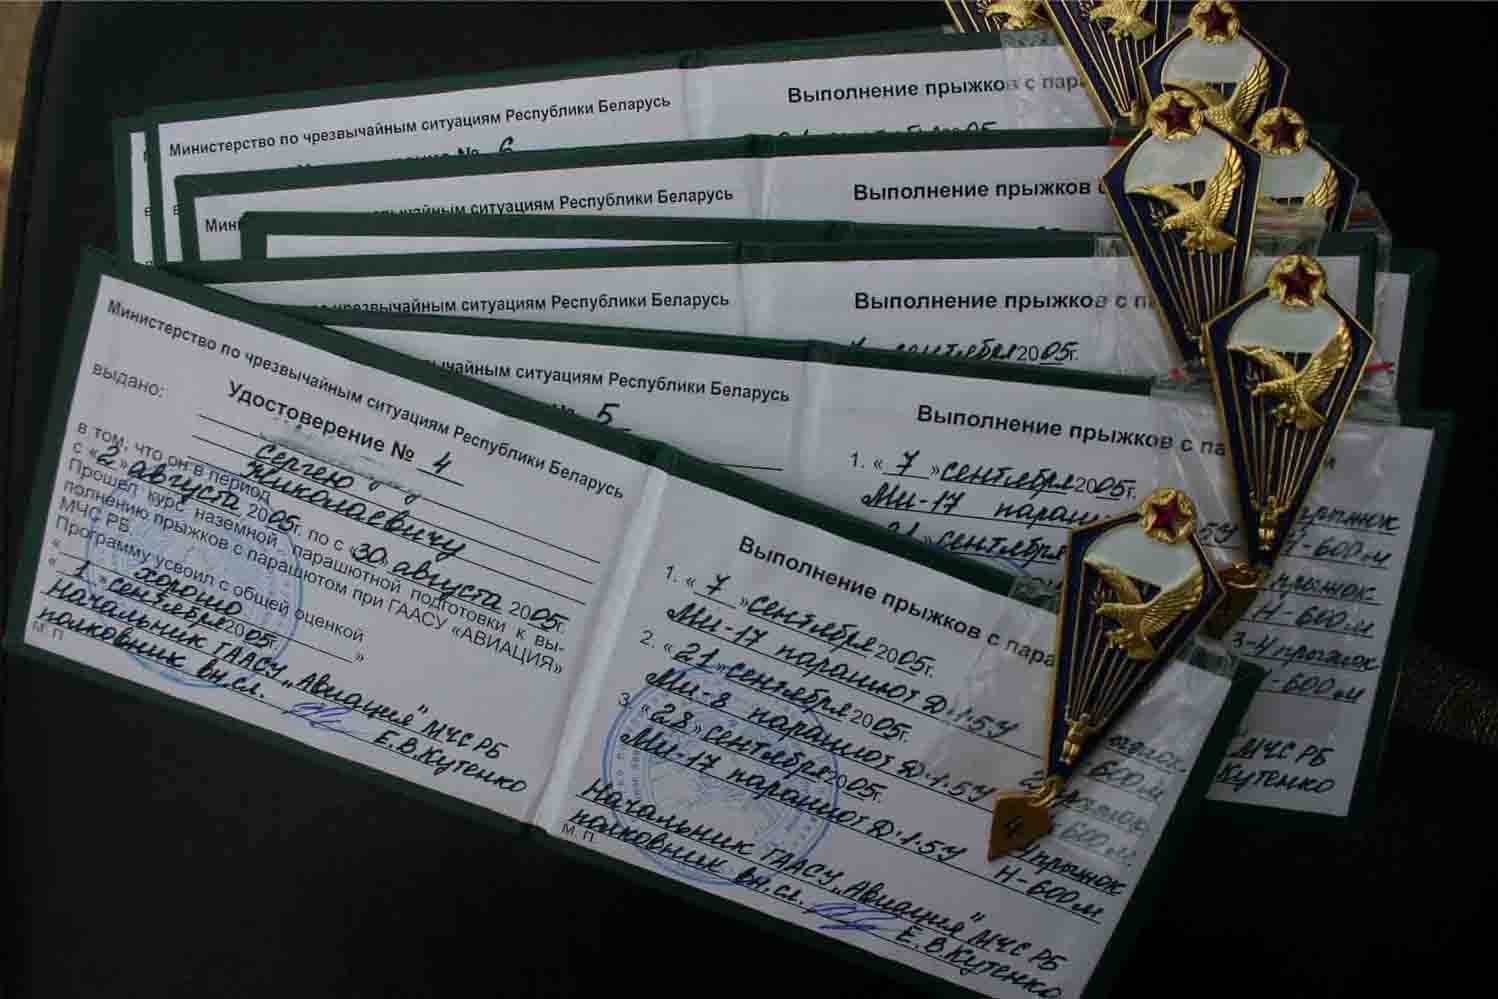 Министерство по чрезвычайным ситуациям Республики Беларусь
№ 6
Выполнение прыжков с пара
2005
чайным ситуациям Республики Беларусь
Выполнение прыжков с
чрезвычайным ситуациям Республики Беларусь
Выполнение прыжков с па
сентября 2005г.
чайным ситуациям Республики Беларусь
5
Выполнение прыжков с па
1. « 7 » сентября 2005г.
Ми-17 параш
прыжок
Н-600м
21 сентября
прыжок
Н-600м
3-4 прыжок
-600м
МЧС РБ
Кутенко
Министерство по чрезвычайным ситуациям Республики Беларусь
Удостоверение № 4
выдано:
Сергею
Николаевичу
в том, что он в период
с «2» августа 2005г. по «30» августа 2005г.
Прошел курс наземной парашютной подготовки к вы-
полнению прыжков с парашютом при ГААСУ «АВИАЦИЯ»
МЧС РБ.
Программу усвоил с общей оценкой
« хорошо »
« 1 » сентября 2005г.
Начальник ГААСУ „Авиация" МЧС РБ
полковник вн.сл. Е.В.Кутенко
М. П
Выполнение прыжков с пара
1. « 7 » сентября 2005г.
Ми-17 парашют Д-1-5У
прыжок
-600м
2. « 21 » сентября 2005г.
Ми-8 парашют Д-1-5У
прыжок
-600м.
3. « 28 » сентября 2005г.
Ми-17 парашют Д-1-5У
прыжок
Н-600м
Начальник ГААСУ „Авиация" МЧС РБ
полковник вн.сл. Е.В.Кутенко
М. П
4